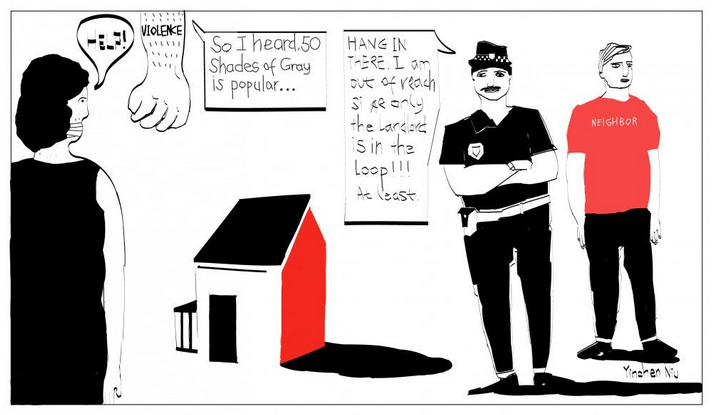 HELP!
VIOLENCE
So I heard, 50
Shades of Gray
is popular...
HANG IN
THERE. I am
out of reach
only
the Landlord
is in the
Loop!!!
At least.
NEIGHBOR
Yinchen Niu